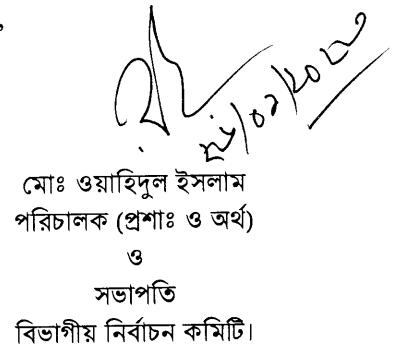 মোঃ ওয়াহিদুল ইসলাম
পরিচালক (প্রশাঃ ও অর্থ)
ও
সভাপতি
বিভাগীয় নির্বাচন কমিটি।